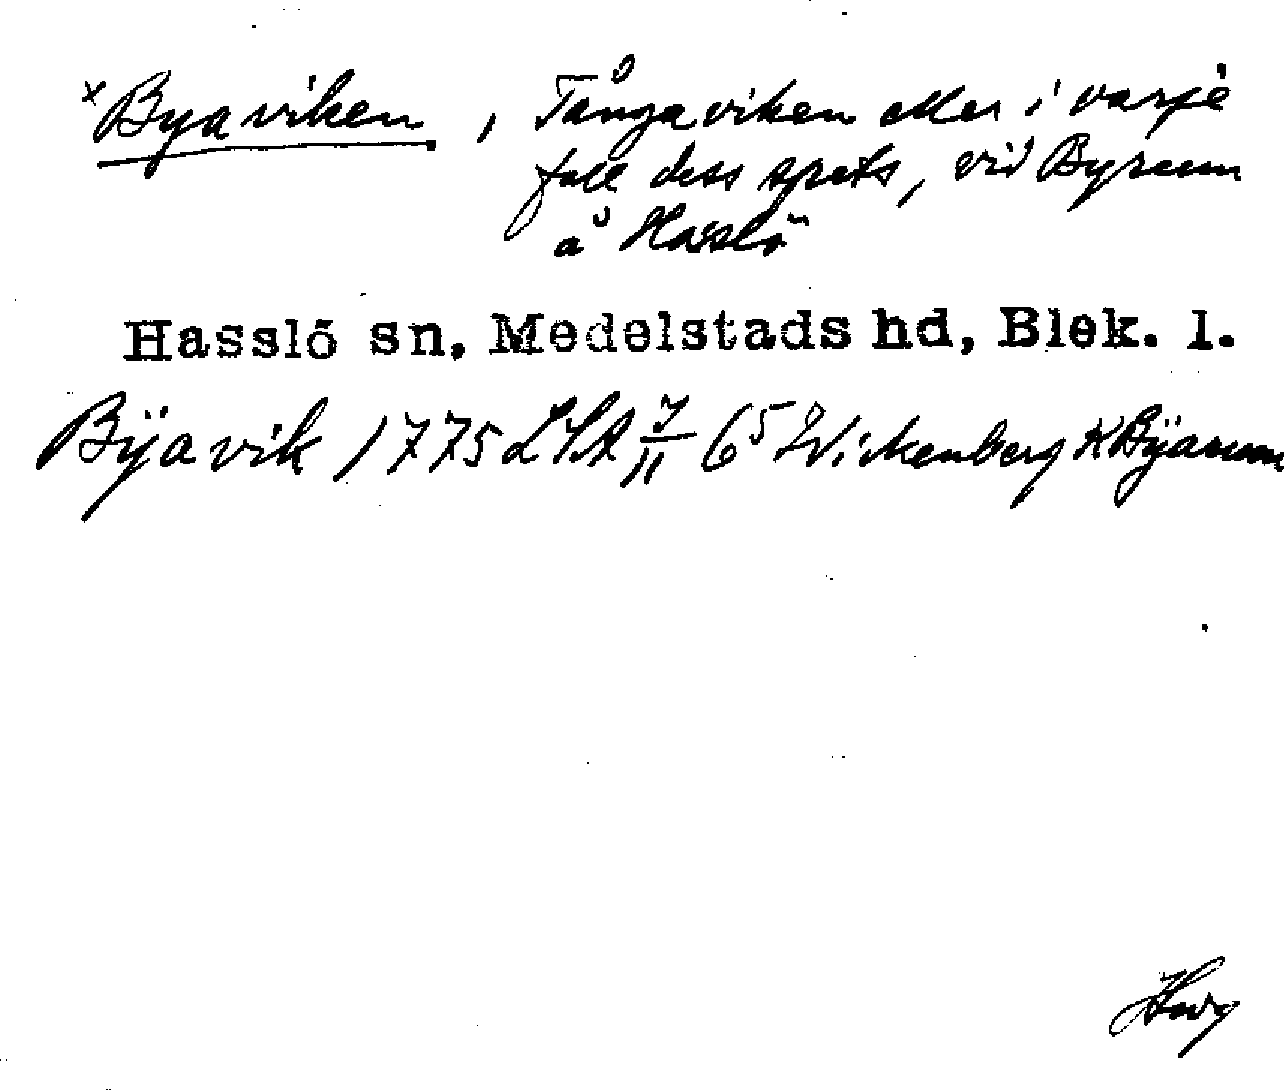 × Byaviken, Tångaviken eller i varje
fall dess spets, vid Byrum
å Hasslö
Hasslö sn, Medelstads hd, Blek. l.
Bÿavik 1775 LSA 7/11 65 Wickenberg K Bÿarum